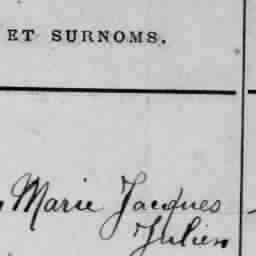 ET SURNOMS.
Marie Jacques
Julien